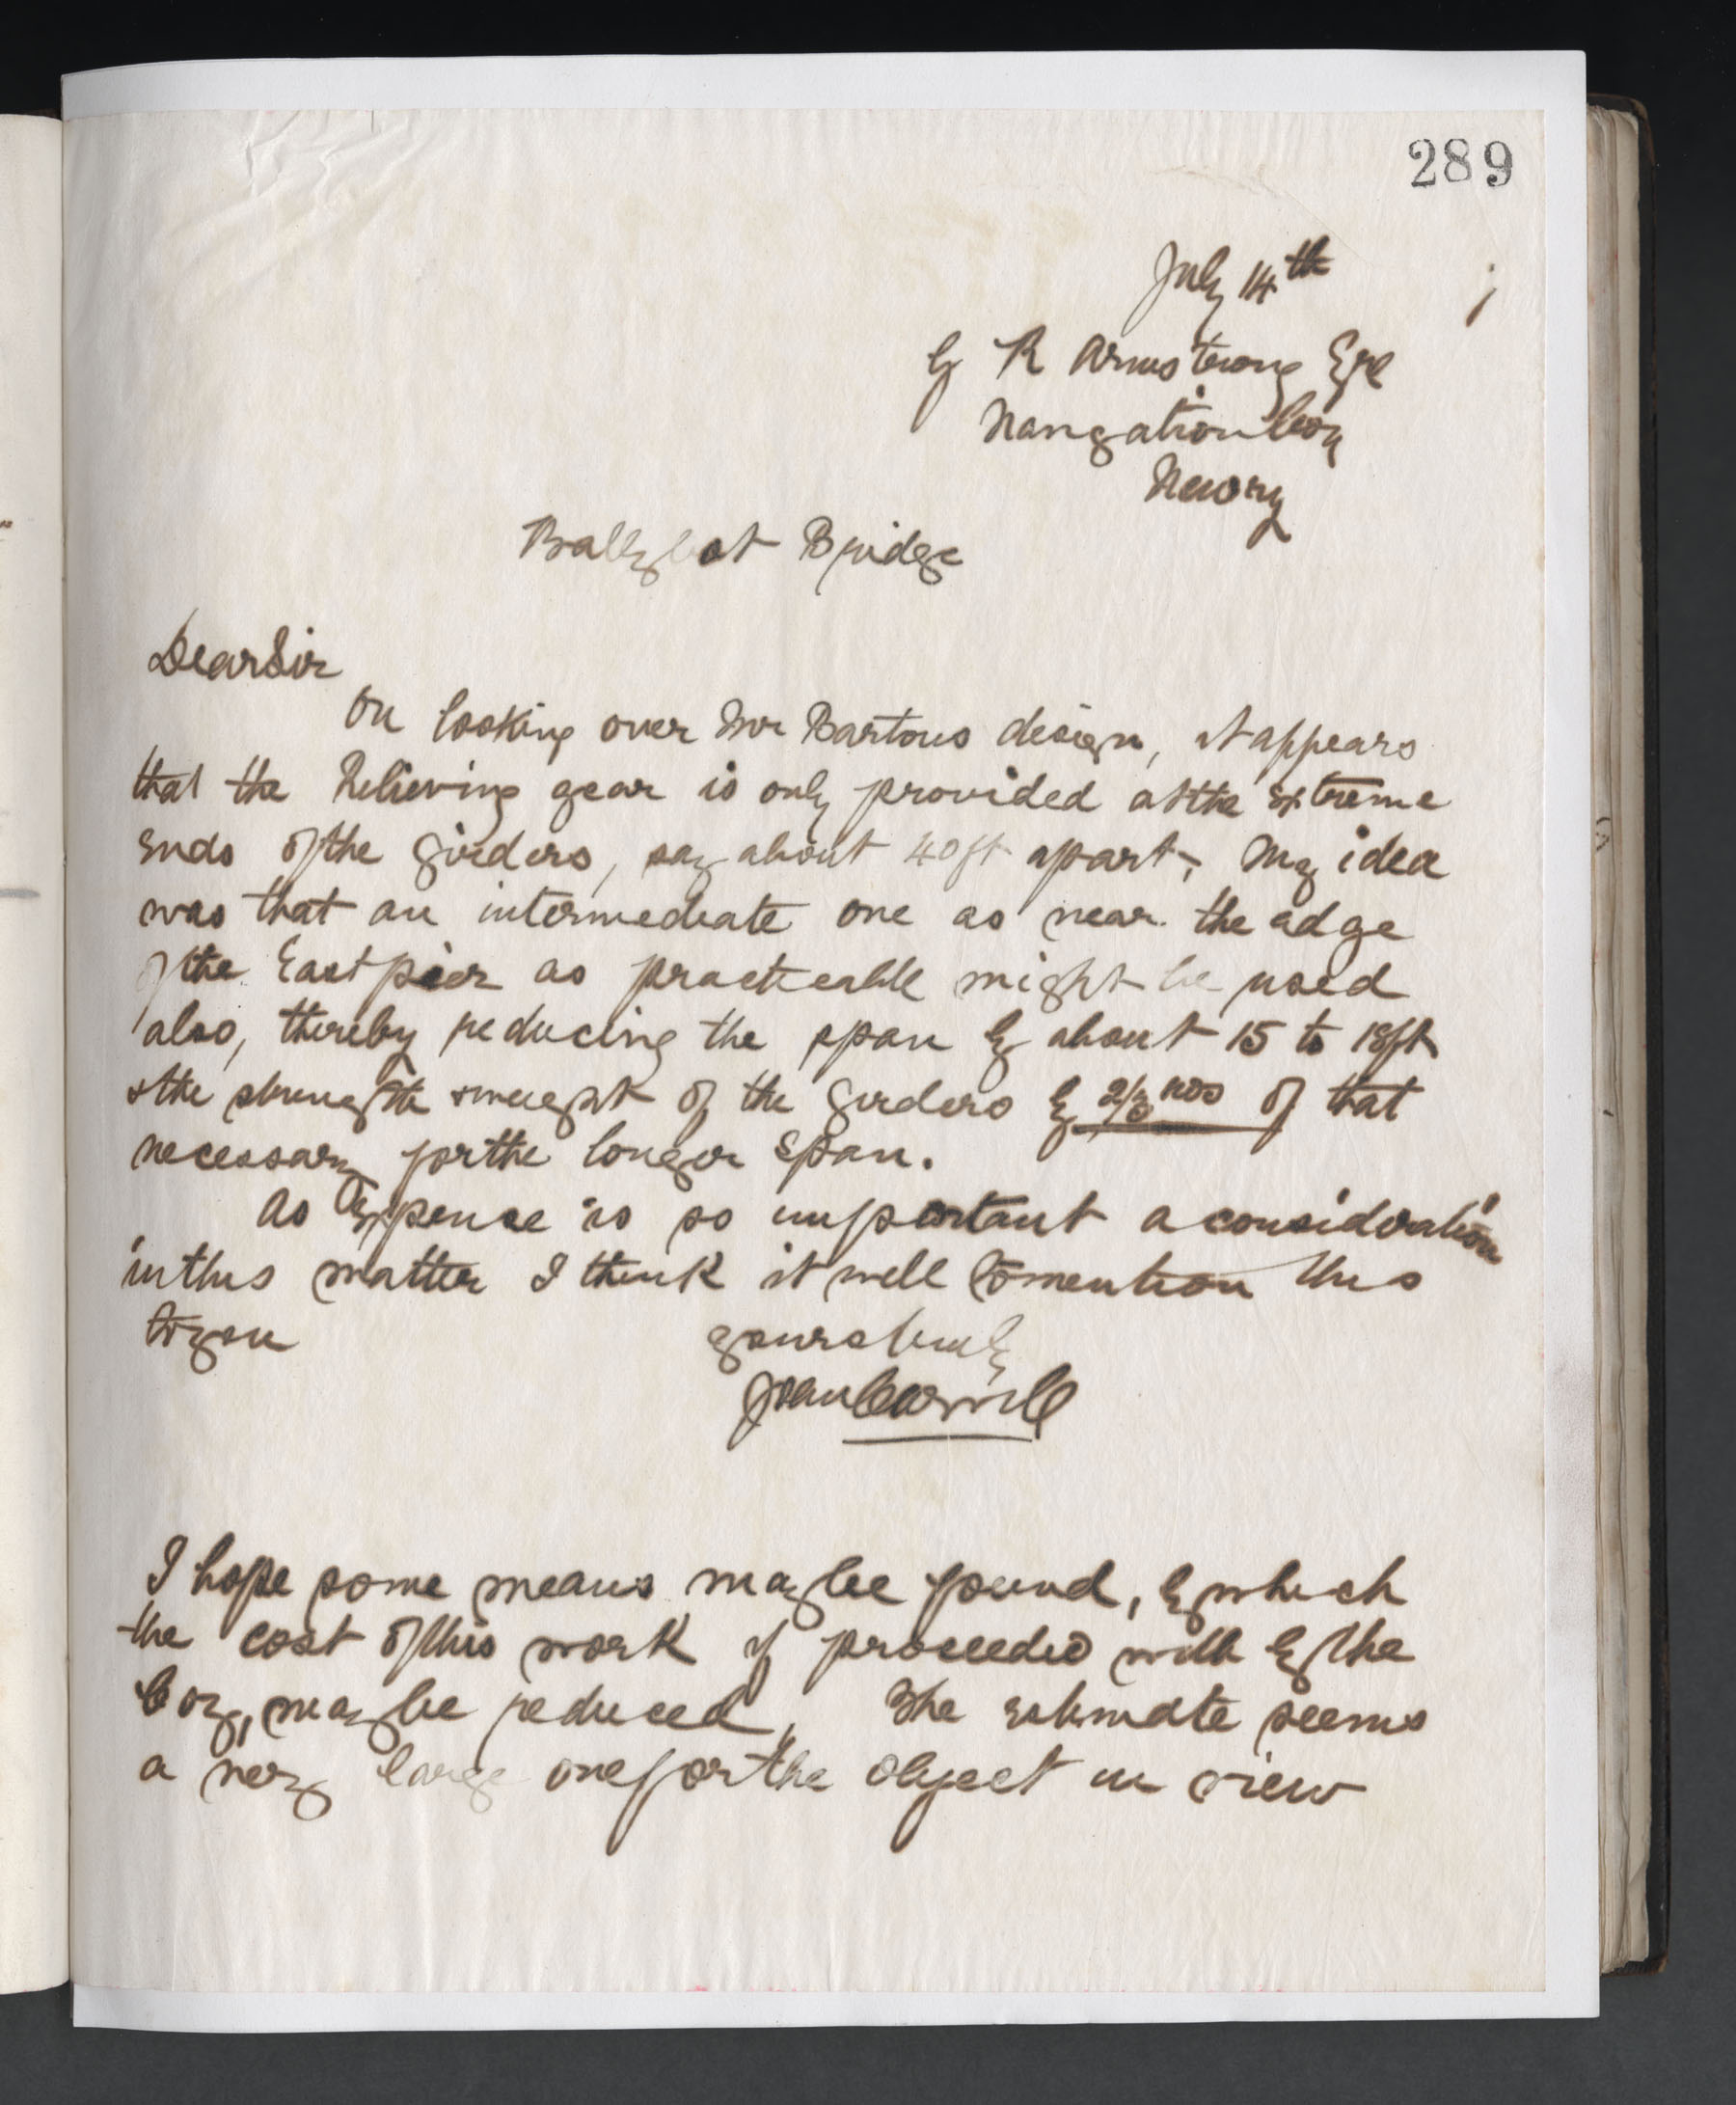 289
July 14th
G R Armstrong Esqe
Navigation Coy
Newry
Ballybot Bridge
Dear Sir
On looking over Mr Bartons design, it appears
that the Relieving gear is only provided at the extreme
ends of the girders, say about 40ft apart, My idea
was that an intermediate one as near the edge
of the East pier as practicable might be used
also, thereby reducing the span by about 15 to 18ft
& the strength & weight of the Girders by 2/3rds of that
necessary for the longer Span.
As Expense is so important a consideration
in this matter I think it well to mention this
to you
yours truly
I hope some means may be found, by which
the cost of this work if proceeded with by the
Coy, may be reduced, The estimate seems
a very large one for the object in view